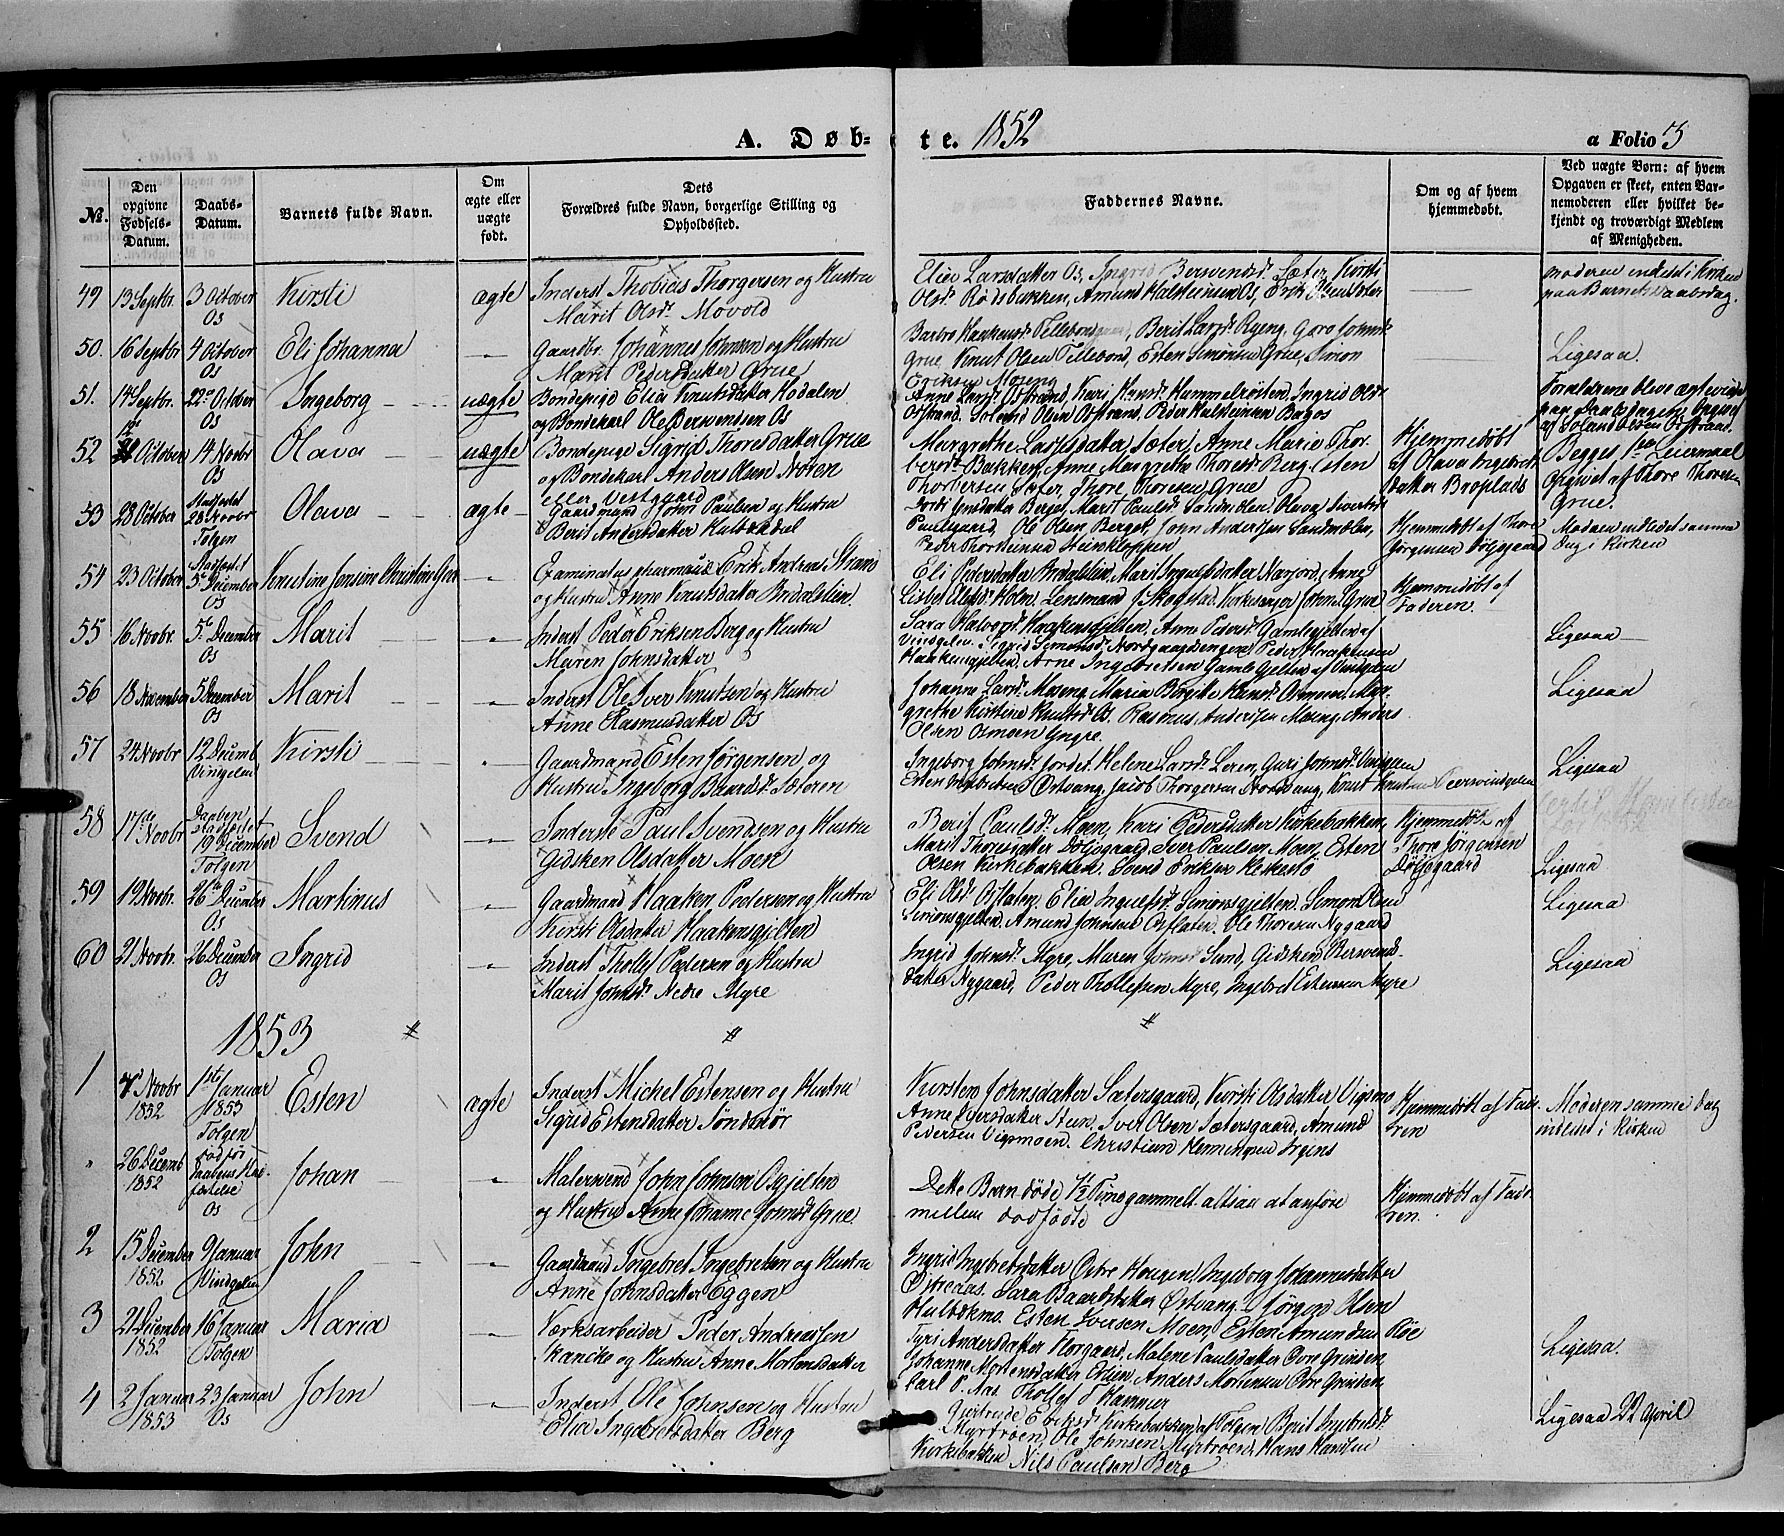 A. Døb-te. 1852
a Folio 3
No.
Den opgivne Fødsels-Datum.
Daabs-Datum.
Barnets fulde Navn.
Om ægte eller uægte født.
Dets Forældres fulde Navn, borgerlige Stilling og Opholdssted.
Faddernes Navne.
Om og af hvem hjemmedøbt.
Ved uægte Børn: af hvem Opgaven er skeet, enten Barnemoderen eller hvilket bekjendt og troværdigt Medlem af Menigheden.
49 13 Septbr. 3 October Os Kirsti ægte
Inderst Thobias Thorgersen og Hustru
Marit Olsdr. Movold
Elie Larsdatter Os, Ingrid Bersvendsdr. Sæter, Kirsti
Olsdr. Rødsbakken, Amund Halsteinsen Os, Erik Olsen Sæter
Moderen indledt i Kirken
paa Barnets Daabsdag.
50. 16 Septbr 4 October Os Eli Johanna "
Gaardbr. Johannes Johnsen og Hustru
Marit Pedersdatter Grue
Barbro Haakensdr. Tellebond, Berit Larsdr. Ryeng, Goro Johnsdr.
Grue, Knut Olsen Tillebond, Esten Simonsen Grue, Simon
Eriksen Moseng
Ligesaa.
51. 14 Septbr. 22de October Os Ingeborg uægte
Bondepige Elia Knutsdatter Hodalen
og Bondekarl Ole Berswendsen Os
Anne Larsdr. Østrand, Kari Hansdr. Hummelrøsten, Ingrid Olsdr.
Østrand. Soland Olsen Østrand. Peder Halsteinsen Bagos
Forældrene bleve ægteviede
paa Daabsdagen. Opgivet
af Soland Olsen Østrand.
52 October 14 Novbr Os Olava uægte
Bondepige Sigrid Thoresdatter Grue
og Bondekarl Anders Olsen Nøren
eller Vestgaard
Margrethe Larsdatter Sæter, Anne Marie Thor-
bersdr. Bakken, Anne Margrethe Thoresdr. Berg, Esten
Thorbersen Sæter, Thore Thoresen Grue
Hjemmedøbt
af Olava Ingebrets
datter Broplads
Begges 1ste Leiermaal
Opgivet af Thore Thoresen
Grue.
53 28 October Stadfæstet 28 Novbr Tolgen Olava ægte
Gaardmand John Paulsen og Hustru
Berit Andersdatter Hulbækdal
Dordi Jonsdatter Berget, Marit Paulsdr. Sandmælen, Olava Sivertsdr.
Paulsgaard, Ole Olsen Berget, John Andersen Sandmælen,
Peder Thorsteinsen Steinkloppen
Hjemmedøbt af Thore
Jørgensen Dølgegaard
Moderen indledet samme
Dag i Kirken
54 23 October Stadfæstet 5te December Os Knutine Jensine Christine "
Examinatus pharmaciæ Erik Andreas Strøm
og Hustru Anne Knutsdatter Bredalslien.
Eli Pedersdatter Bredalslien, Marit Ingulfsdatter Narjord, Anne
Lisbet Olsdr. Holm. Lensmand J. Skogstad. Kirkesanger John J. Grue
Hjemmedøbt af
Faderen
55 16 Novbr. 5te December Os Marit "
Inderst Peder Eriksen Berg og Hustru
Maren Johnsdatter
Sara Halvorsdr. Haakensgjelten. Anne Pedersdr. Gamlegjelten af
Vingelen. Sigrid Simonsdr. Nordgaardsengen, Peder Haakensen
Haakensgjelten. Arne Ingebretsen Gamlegjelten af Vingelen
Ligesaa
56 18 November 5 December Os Marit "
Inderst Ole Iver Knutsen og Hustru
Anne Rasmusdatter Os
Johanna Larsdr. Moseng. Maria Birgitte Hansdr. Osmoen. Mar-
grethe Kirstine Knutsdr. Os. Rasmus Andersen Moseng. Anders
Olsen Osmoen Yngre.
Ligesaa
57 24 Novbr 12 Decemb. Vingelen Kirsti "
Gaardmand Esten Jørgensen og
Hustru Ingeborg Baardsdr. Sæteren
Ingeborg Johnsdr. Jordet. Helene Larsdr. Leren, Guri Johnsdr. Vingelen
Esten Ingebretsen Østvang, Jacob Thorgersen Nordvang, Knut Knutsen
Ligesaa
58 17de Novbr Daaben stadfæstet 19 December Tolgen Svend "
Inderste Paul Svendsen og Hustru
Gidsken Olsdatter Moen
Berit Paulsdr. Moen, Kari Pedersdatter Kirkebakken,
Marit Thoresdatter Dølgegaard, Iver Paulsen Moen, Esten
Olsen Kirkebakken. Svend Eriksen
Hjemmedøbt af
Thore Jørgensen
Dølgegaard
Ligesaa
59 19 Novbr. 26de December Os Martinus "
Gaardmand Haaken Pedersen og Hustru
Kirsti Olsdatter Haakensgjelten
Eli Olsdr. Osflaten. Elia Ingulfsdr. Simonsgjelten. Simon Olsen
Simonsgjelten. Amund Johnsen Osflaten. Ole Thoresen Nygaard
Ligesaa
60 21 Novbr. 26 December Os Ingrid "
Inderst Thollef Pedersen og Hustru
Marit Johnsdr. Nedre Myre
Ingrid Johnsdr. Myre, Maren Johnsdr. Sund, Gidsken Bersvends-
datter Nygaard, Peder Thollefsen Myre, Ingebret Estensen Myre
Ligesaa
1853
1 7 Novbr 1852 1ste Januar 1853 Tolgen Esten ægte
Inderst Michel Estensen og Hustru
Sigrid Estensdatter Søndmør
Kirsten Johnsdatter Sætersgaard, Kirsti Olsdatter Vigsmo
Anne Iversdatter Steen, Iver Olsen Sætersgaard, Amund
Pedersen Vigsmoen. Christian Henningsen Irgens
Hjemmedøbt af Fade-
ren
Moderen samme Dag
indledet i Kirken
" 26 Decemb 1852 død før Daabens Stadfæstelse Os Johan "
Malersvend John Johnsen Osgjelten
og Hustru Anne Johanne Jonsdr. Grue.
Dette Barn døde 1/2 Time gammelt altsaa at anføre
mellem dødfødte
Hjemmedøbt af Fade-
ren.
2 15 December 1852 9 Januar Vindgelen John "
Gaardmand Ingebret Ingebretsen og Hustru
Anne Johnsdatter Eggen
Ingrid Ingebretsdatter Østre Haugen, Ingeborg Johannesdatter
Østreaas. Sara Baardsdatter Østvang. Jørgen Olsen
Hulbækmo. Esten Iversen Moen, Esten Amundsen Røe
3 21 December 1852 16 Januar Tolgen Maria "
Værksarbeider Peder Andreassen
Skancke og Hustru Anne Mortensdatter
Tyri Andersdatter Florgaard, Malene Paulsdatter Øvre Grinden
Johanne Mortensdatter Erlien, Anders Mortensen Øvre Grinden
Carl P. Aas. Thollef T Hammer
Ligesaa.
4 2 Januar 1853 23 Januar Os John "
Inderst Ole Johnsen og Hustru
Elia Ingebretsdatter Berg
Gjertrude Eriksdr. Kirkebakken af Tolgen Berit Ingebretsdr.
Myrtrøen, Ole Johnsen Myrtrøen, Hans Hansen
Kirkebakken Nils Paulsen Berg
Ligesaa 22 April